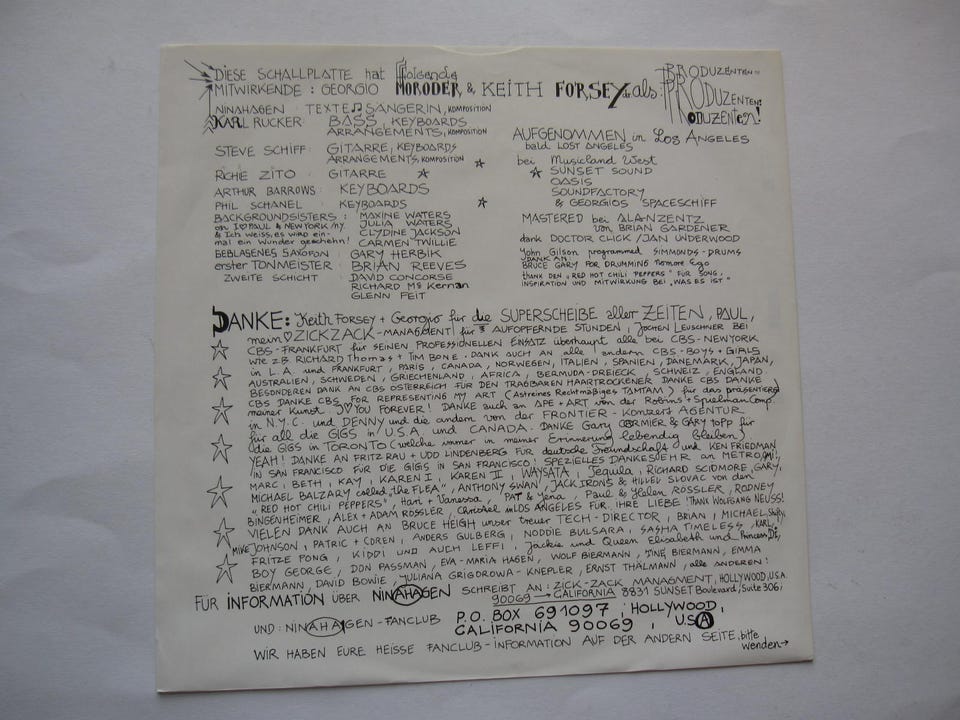 DIESE SCHALLPLATTE hat folgende
MITWIRKENDE : GEORGIO MORODER & KEITH FORSEY als:
PRODUZENTEN!
PRODUZENTEN!
PRODUZENTEN!
NINAHAGEN : TEXTE SÄNGERIN, KOMPOSITION
KARL RUCKER: BASS, KEYBOARDS
ARRANGEMENTS, KOMPOSITION
STEVE SCHIFF: GITARRE, KEYBOARDS
ARRANGEMENTS, KOMPOSITION
RICHIE ZITO : GITARRE
ARTHUR BARROWS: KEYBOARDS
PHIL SCHANEL : KEYBOARDS
BACKGROUNDSISTERS : MAXINE WATERS
oh I♡PAUL & NEWYORK/NY. JULIA WATERS
& Ich weiss, es wird ein- CLYDINE JACKSON
mal ein Wunder geschehn! CARMEN TWILLIE
BEBLASENES SAXOFON : GARY HERBIK
erster TONMEISTER : BRIAN REEVES
ZWEITE SCHICHT : DAVID CONCORSE
RICHARD McKernan
GLENN FEIT
AUFGENOMMEN in LOS ANGELES
bald LOST ANGELES
bei Musicland West
SUNSET SOUND
OASIS
SOUNDFACTORY
& GEORGIOS SPACESCHIFF
MASTERED bei ALANZENTZ
von BRIAN GARDENER
dank DOCTOR CLICK / JAN UNDERWOOD
John Gilson programmed SIMMONDS-DRUMS
DANK AN:
BRUCE GARY FOR DRUMMING Normore Ego
thank DEN „RED HOT CHILI PEPPERS" FÜR SONG,
INSPIRATION UND MITWIRKUNG BEI „WAS ES IST"
DANKE: Keith FORSEY + Georgio für die SUPERSCHEIBE aller ZEITEN, PAUL,
mein ♡ ZICKZACK-MANAGMENT für AUFOPFERNDE STUNDEN, JOCHEN LEUSCHNER BEI
CBS-FRANKFURT für SEINEN PROFESSIONELLEN EINSATZ überhaupt alle bei CBS-NEWYORK
wie z.B. RICHARD Thomas + TIM BONE. DANK AUCH AN alle andern CBS-BOYS + GIRLS
in L.A. und FRANKFURT, PARIS, CANADA, NORWEGEN, ITALIEN, SPANIEN, DÄNEMARK, JAPAN,
AUSTRALIEN, SCHWEDEN, GRIECHENLAND, AFRICA, BERMUDA-DREIECK, SCHWEIZ, ENGLAND
BESONDEREN DANK AN CBS ÖSTERREICH FÜR DEN TRAGBAREN HAARTROCKENER DANKE CBS DANKE
CBS DANKE CBS FOR REPRESENTING MY ART (Astreines Rechtmäßiges TAMTAM) für das präsentieren
meiner Kunst. I♡YOU FOREVER! DANKE auch an APE + ART von der Robins + Spielman Comp.
in N.Y.C. und DENNY und die andern von der FRONTIER-Konzert AGENTUR
für all die GIGS in U.S.A. und CANADA. DANKE Gary CORMIER & GARY TOPP für
die GIGS in TORONTO (welche immer in meiner Erinnerung lebendig bleiben)
YEAH! DANKE AN FRITZ RAU + UDO LINDENBERG FÜR deutsche Freundschaft und KEN FRIEDMAN
IN SAN FRANCISCO FÜR DIE GIGS IN SAN FRANCISCO! SPEZIELLES DANKESEHR AN METRO,
MARC, BETH, KAY, KAREN I, KAREN II, WAYSATA, Tequila, RICHARD SCIDMORE, GARY,
MICHAEL BALZARY called „THE FLEA", ANTHONY SWAN, JACK IRONS & HILLEL SLOVAC von den
„RED HOT CHILI PEPPERS", Hari + Vanessa, PAT & Yena, Paul & Helen RÖSSLER, RODNEY
BINGENHEIMER, ALEX + ADAM RÖSSLER, Christiel in LOS ANGELES FÜR IHRE LIEBE! THANK WOLFGANG NEUSS!
VIELEN DANK AUCH AN BRUCE HEIGH unser treuer TECH-DIRECTOR, BRIAN, MICHAEL,
MIKE JOHNSON, PATRIC + COREN, ANDERS GULBERG, NODDIE BULSARA, SASHA TIMELESS, KARL,
FRITZE PONG, KIDDI UND AUCH LEFFI, Jackie und Queen Elisabeth und Princess Di,
BOY GEORGE, DON PASSMAN, EVA-MARIA HAGEN, WOLF BIERMANN, TINE BIERMANN, EMMA
BIERMANN, DAVID BOWIE, YULIANA GRIGOROWA-KNEPLER, ERNST THÄLMANN, alle anderen!
FÜR INFORMATION ÜBER NINAHAGEN SCHREIBT AN: ZICK-ZACK MANAGMENT, HOLLYWOOD, U.S.A.
90069 → CALIFORNIA 8831 SUNSET Boulevard, Suite 306,
UND: NINAHAGEN-FANCLUB P.O. BOX 691097, HOLLYWOOD,
CALIFORNIA 90069, USA
WIR HABEN EURE HEISSE FANCLUB-INFORMATION AUF DER ANDERN SEITE, bitte
wenden→